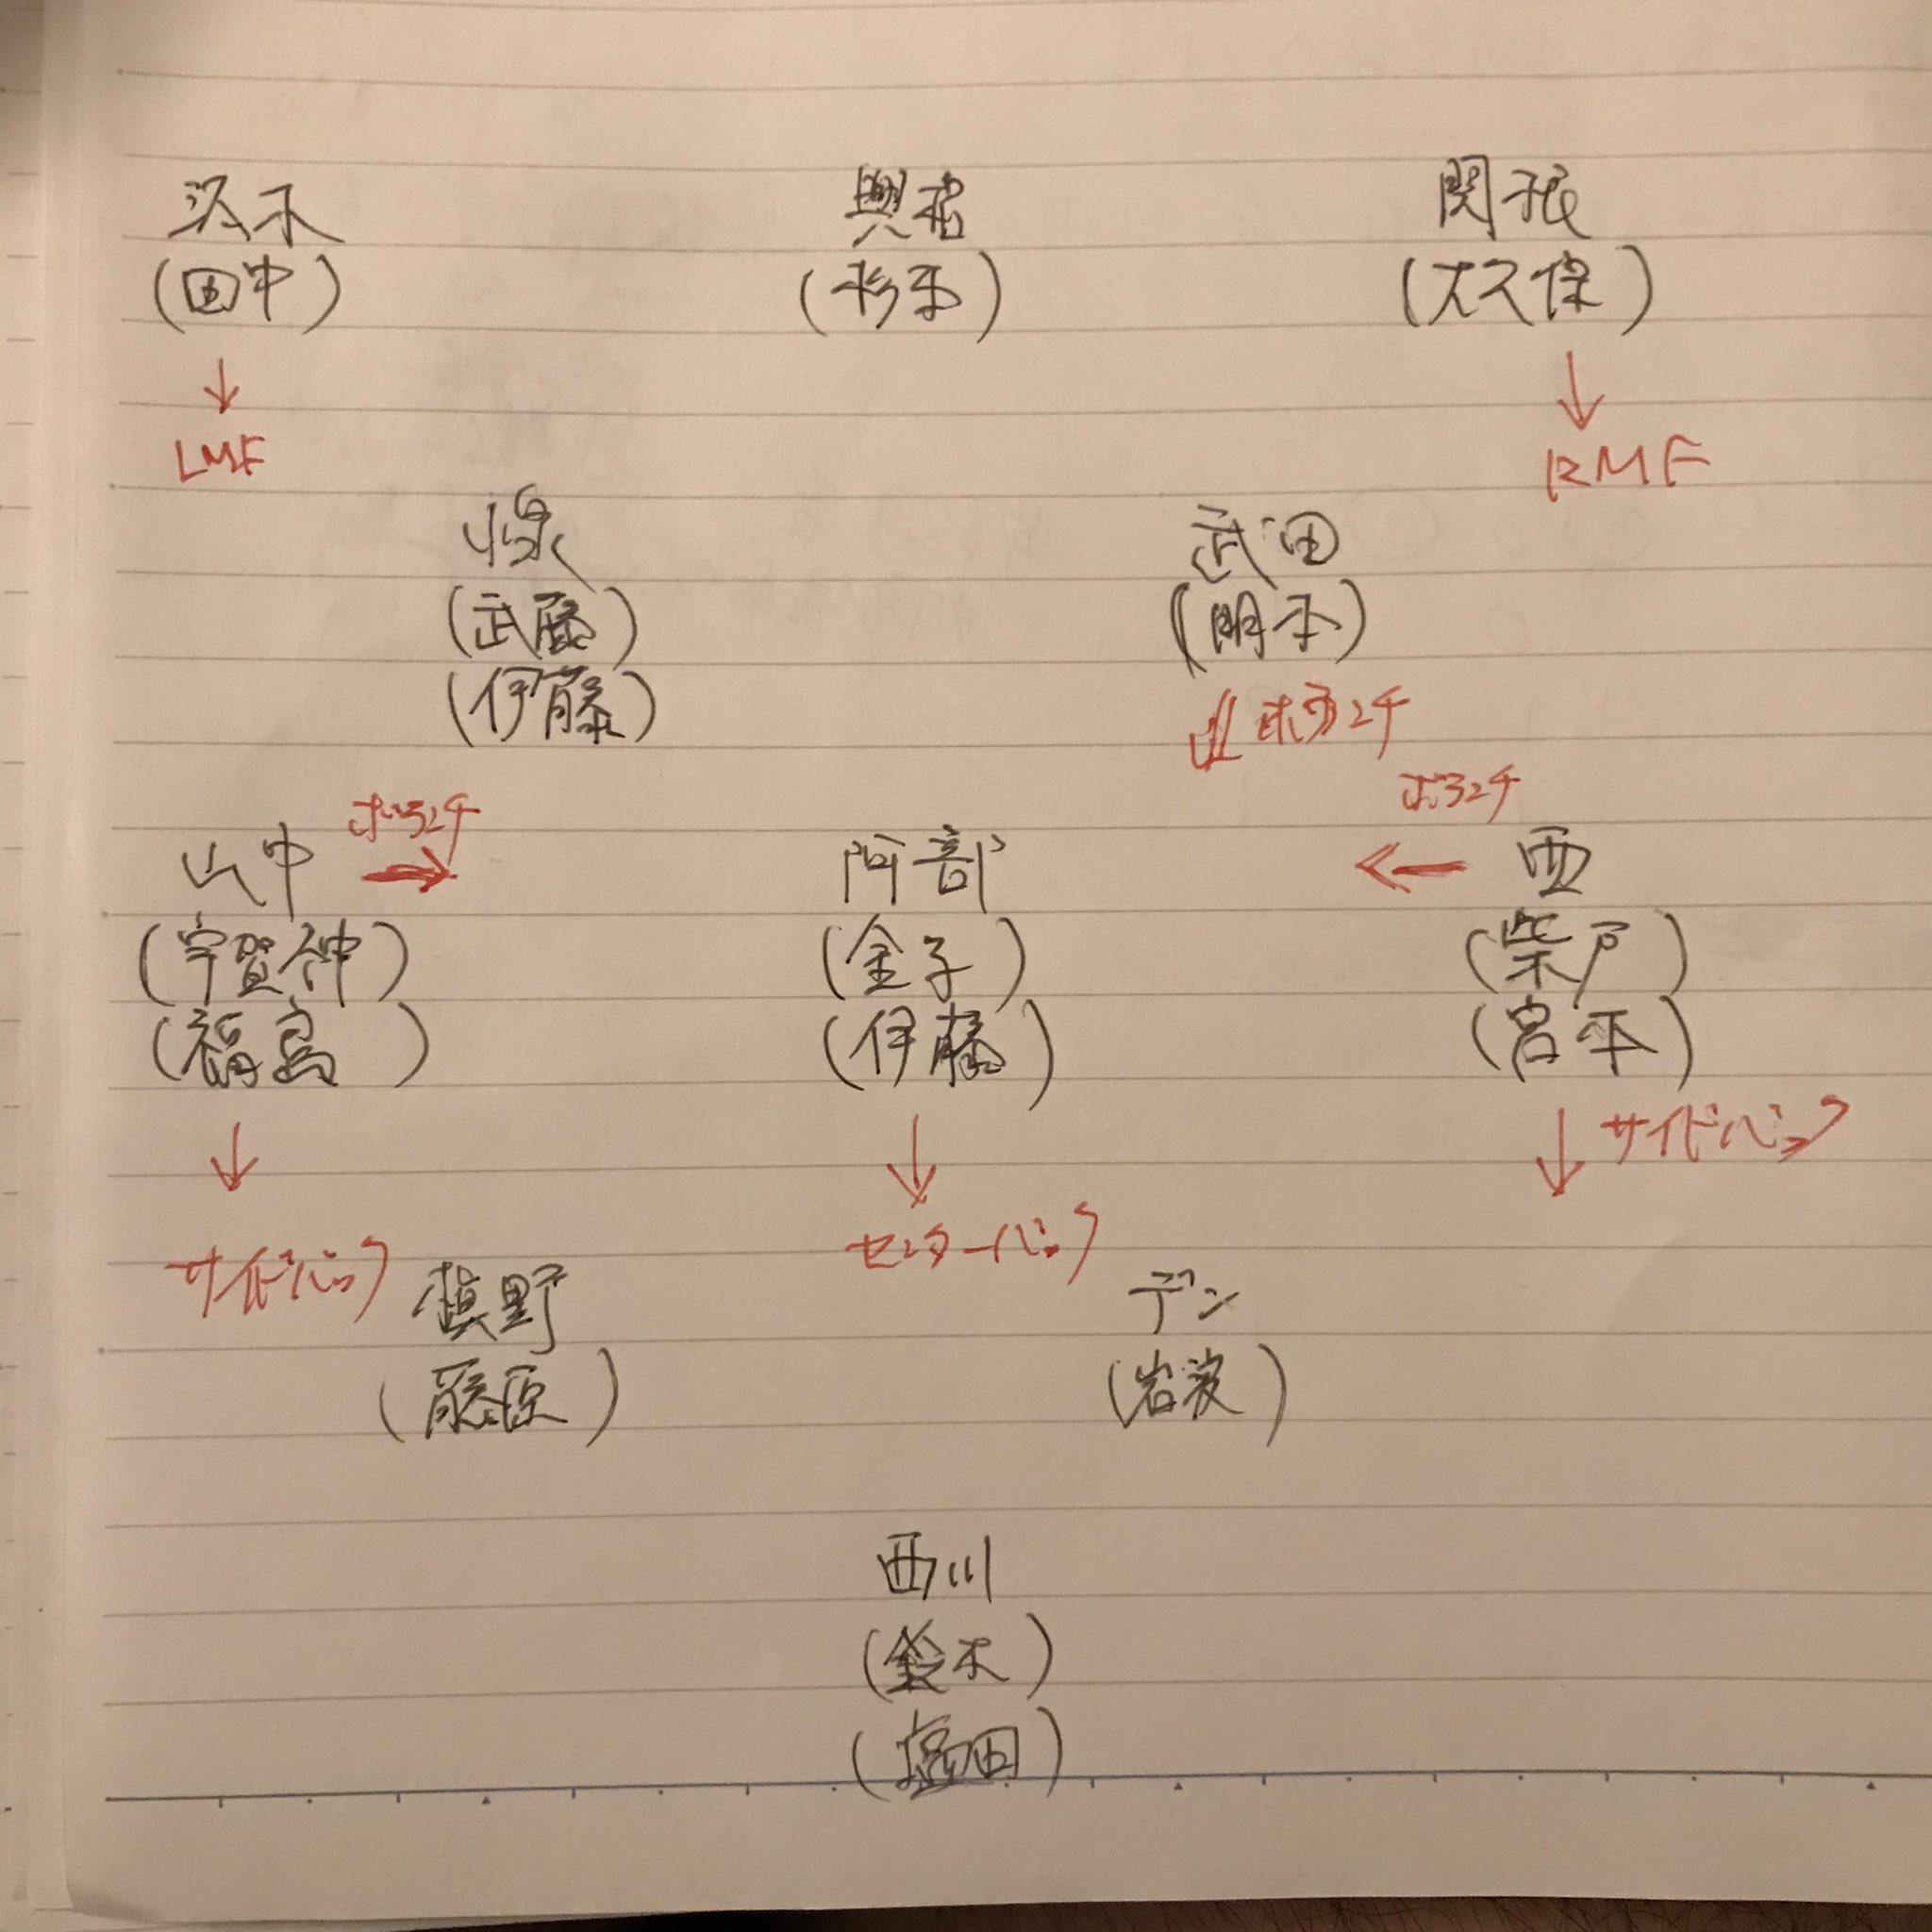 汲木
(田中)
興梠
(杉本)
関根
(大久保)
LMF
RMF
小泉
(武藤)
(伊藤)
武田
(明本)
ボランチ
ボランチ
ボランチ
山中
(宇賀神)
(福島)
阿部
(金子)
(伊藤)
西
(柴戸)
(宮平)
サイドバック
サイドバック
センターバック
槙野
(藤原)
デン
(岩波)
西川
(鈴木)
(塩田)